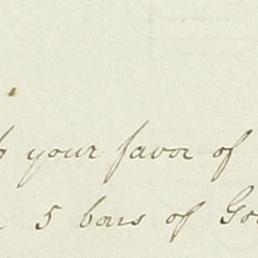 your favor of
5 bars of